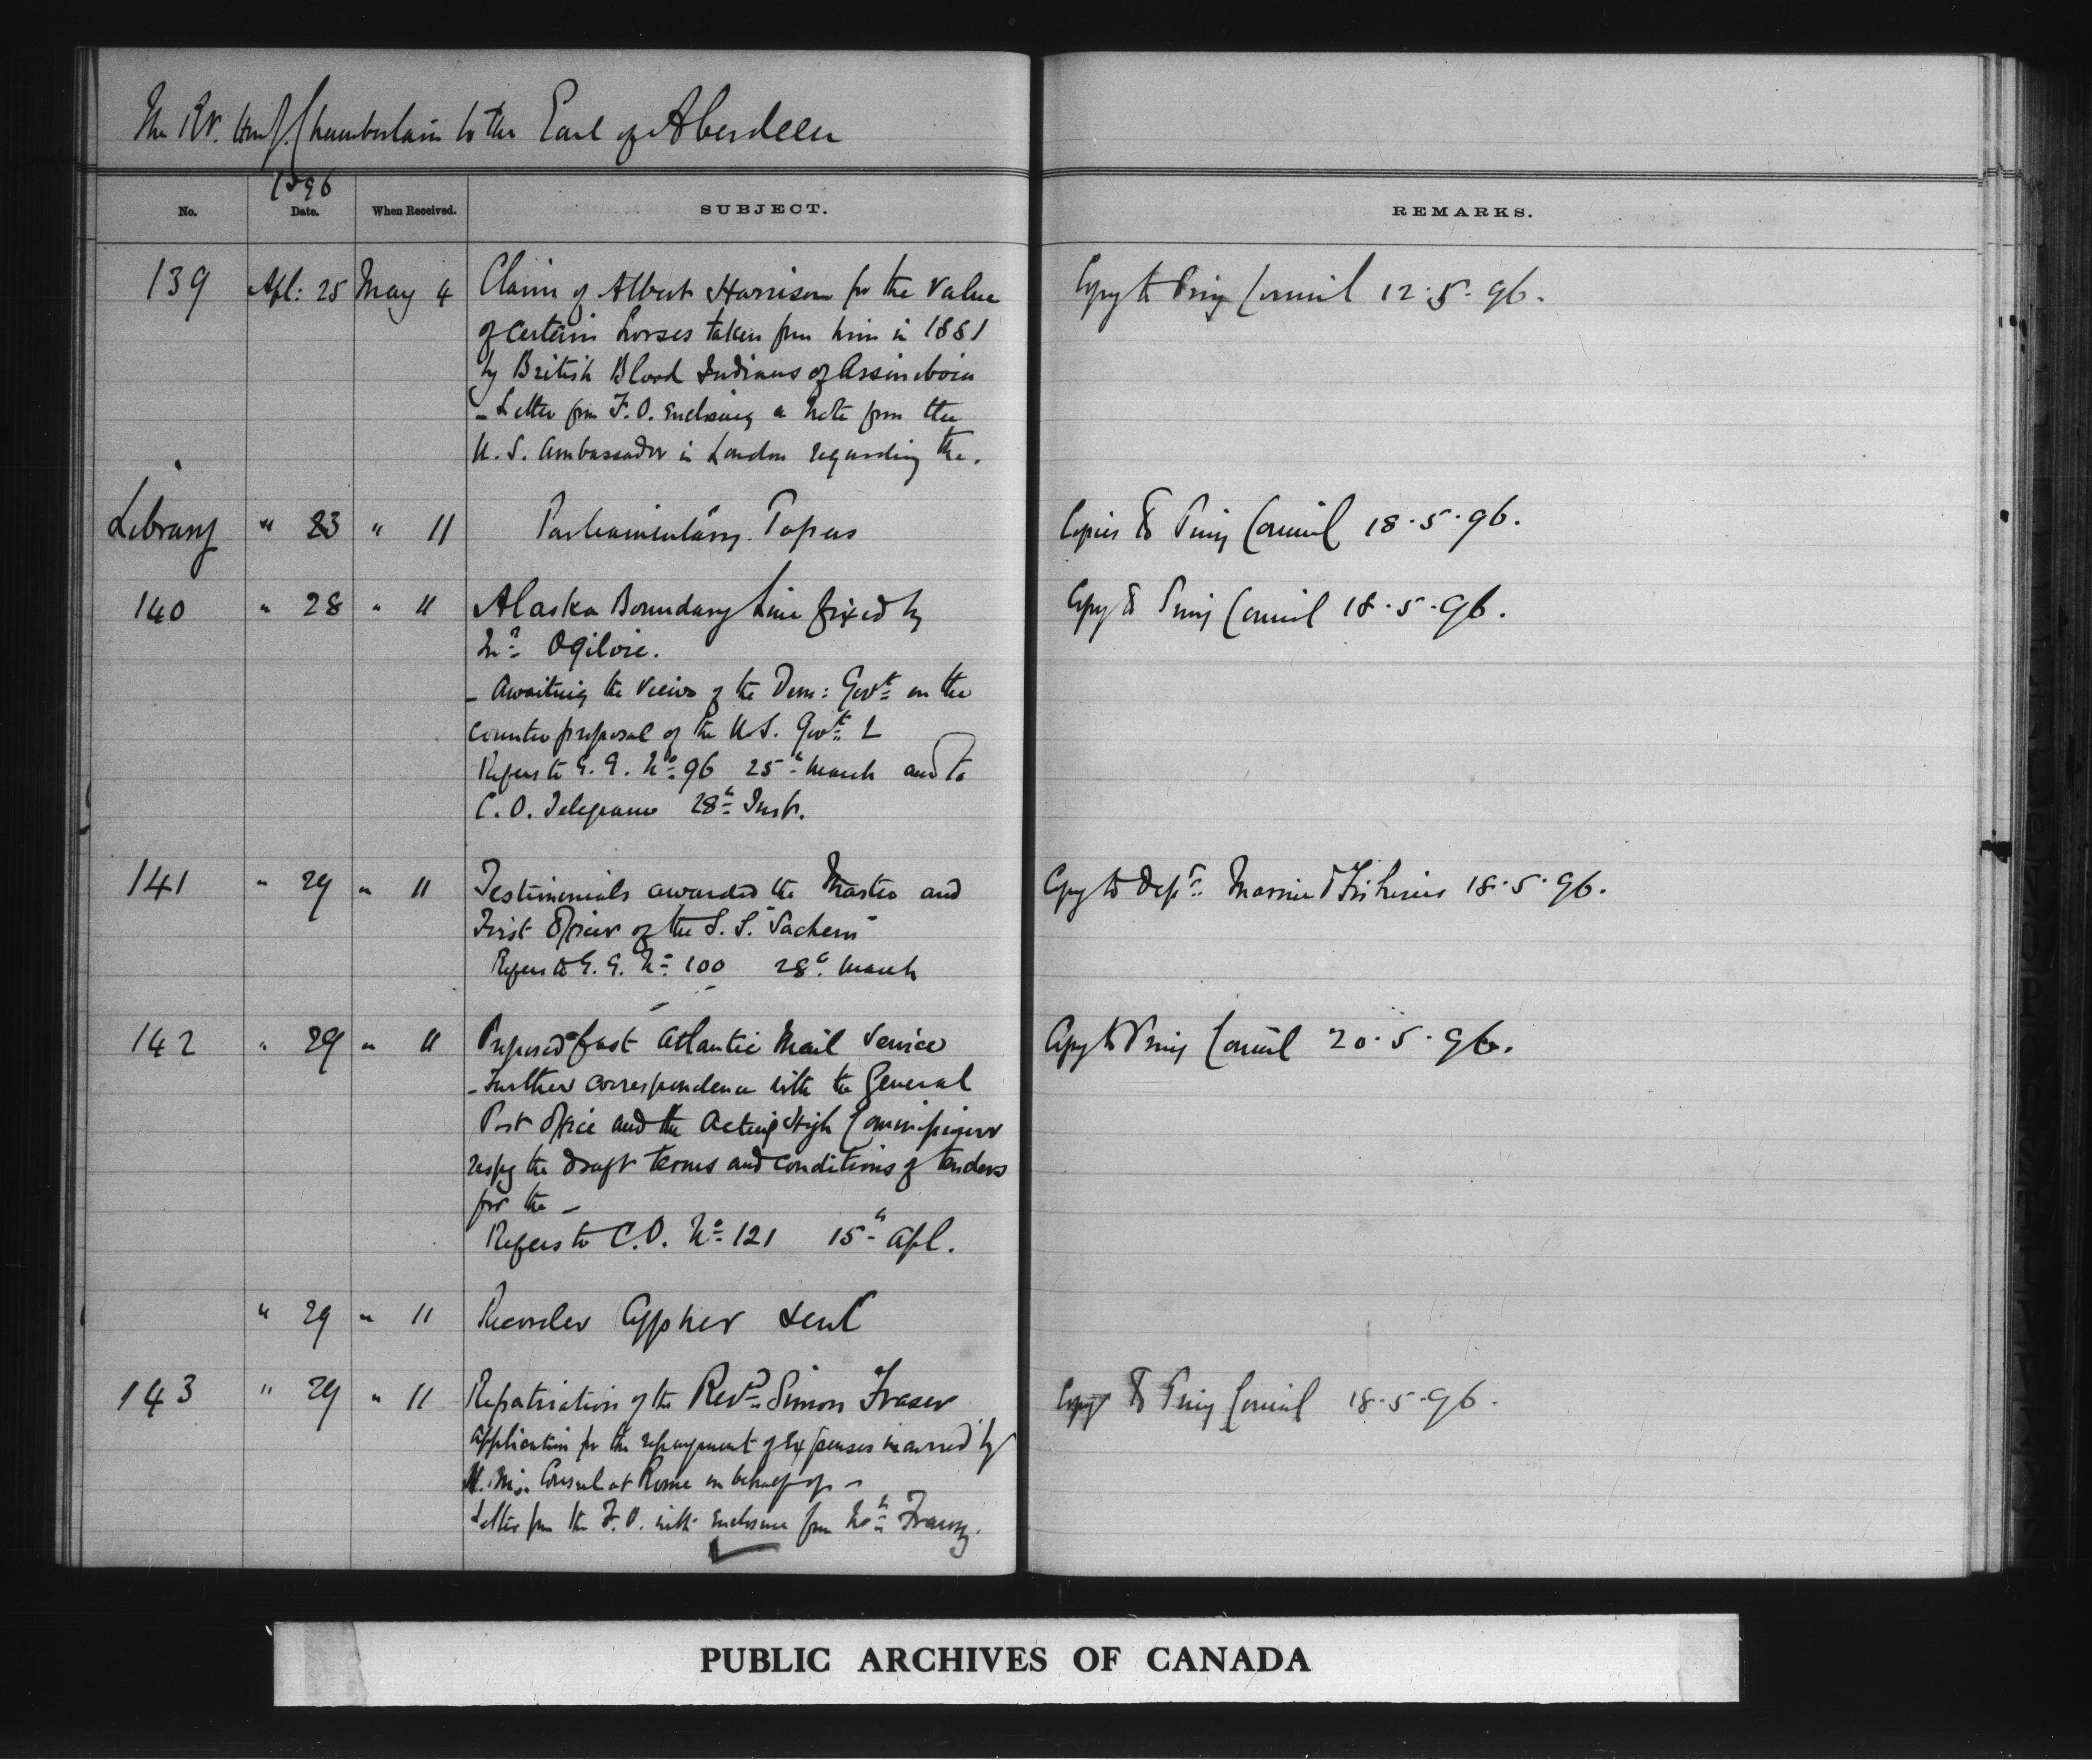 The Rt. Hon. J. Chamberlain to the Earl of Aberdeen
1896
No. Date. When Received. SUBJECT. REMARKS.
139 Apl: 25 May 4 Claim of Albert Harrison for the value Copy to Privy Council 12.5.96.
of certain horses taken from him in 1881
by British Blood Indians of Assiniboia
- Letter from F.O. enclosing a note from the
U.S. Ambassador in London regarding the.
Library " 23 " 11 Parliamentary Papers Copies to Privy Council 18.5.96.
140 " 28 " 11 Alaska Boundary Line fixed by Copy to Privy Council 18.5.96.
Mr. Ogilvie.
- Awaiting the views of the Dom: Govt. on the
counter proposal of the U.S. Govt. &
Refers to G.G. No. 96 25th March and to
C.O. Telegram 28th Inst.
141 " 29 " 11 Testimonials awarded the Master and Copy to Dept. Marine & Fisheries 18.5.96.
First Officer of the S.S. "Sachem"
Refers to G.G. No. 100 28th March
142 " 29 " 11 Proposed fast Atlantic Mail Service Copy to Privy Council 20.5.96.
- Further correspondence with the General
Post Office and the Acting High Commissioner
respg the draft terms and conditions of tenders
for the -
Refers to C.O. No. 121 15th Apl.
" 29 " 11 Recorder Cypher sent
143 " 29 " 11 Repatriation of the Revd. Simon Fraser Copy to Privy Council 18.5.96.
Application for the repayment of expenses incurred by
H.M's. Consul at Rome on behalf of -
Letter from the F.O. with enclosure from
PUBLIC ARCHIVES OF CANADA